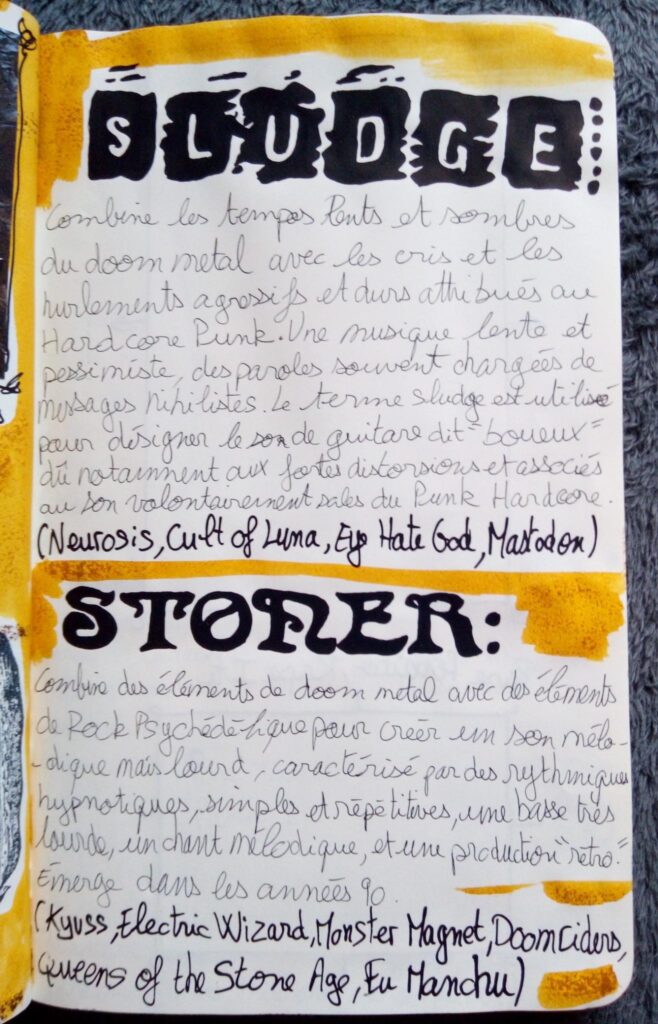 SLUDGE:
Combine les tempos lents et sombres
du doom metal avec les cris et les
hurlements agressifs et durs attribués au
Hardcore Punk. Une musique lente et
pessimiste, des paroles souvent chargées de
messages nihilistes. Le terme sludge est utilisé
pour désigner le son de guitare dit "boueux"
dû notamment aux fortes distorsions et associés
au son volontairement sales du Punk Hardcore.
(Neurosis, Cult of Luna, Eye Hate God, Mastodon)
STONER:
Combine des éléments de doom metal avec des éléments
de Rock Psychédélique pour créer un son mélo-
-dique mais lourd, caractérisé par des rythmiques
hypnotiques, simples et répétitives, une basse très
lourde, un chant mélodique, et une production "rétro."
Émerge dans les années 90.
(Kyuss, Electric Wizard, Monster Magnet, Doom Ciders,
Queens of the Stone Age, Fu Manchu)